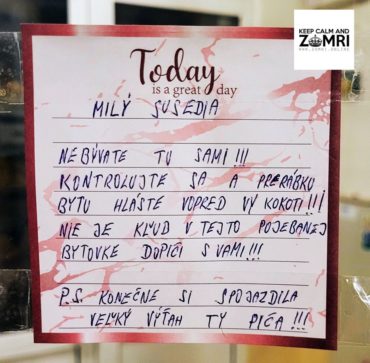 KEEP CALM AND
ZOMRI
WWW.ZOMRI.ONLINE
Today
is a great day
MILÝ SUSEDIA
NEBÝVATE TU SAMI!!!
KONTROLUJTE SA A PRERÁBKU
BYTU HLÁSTE VOPRED VY KOKOTI!!!
NIE JE KĽUD V TEJTO POJEBANEJ
BYTOVKE DOPIČI S VAMI!!!
P.S. KONEČNE SI SPOJAZDILA
VEĽKÝ VÝŤAH TY PIČA!!!